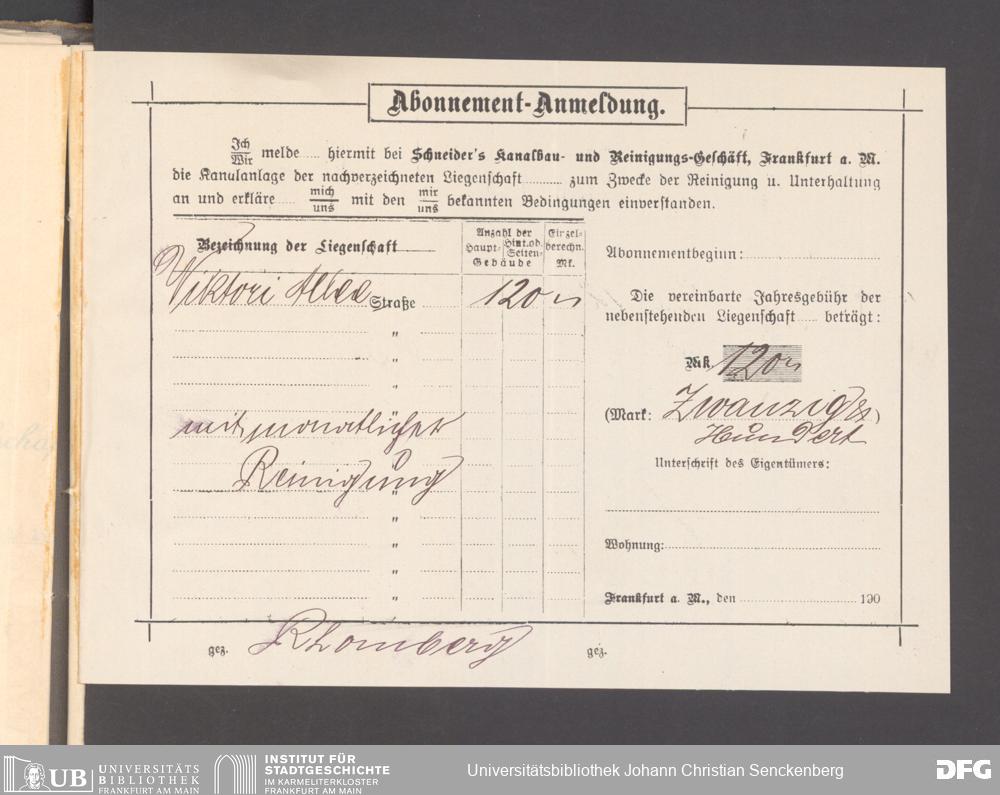 Abonnement-Anmeldung.
Ich
Wir melde hiermit bei Schneider's Kanalbau- und Reinigungs-Geschäft, Frankfurt a. M.
die Kanalanlage der nachverzeichneten Liegenschaft zum Zwecke der Reinigung u. Unterhaltung
an und erkläre mich
uns mit den mir
uns bekannten Bedingungen einverstanden.
Bezeichnung der Liegenschaft
Anzahl der
Haupt- Hint. od. Seiten-
Gebäude
Einzel-
berechn.
Mk.
Viktori Allee Straße 120
"
"
"
mit monatlicher
Reinigung "
"
"
"
"
Abonnementbeginn:
Die vereinbarte Jahresgebühr der
nebenstehenden Liegenschaft beträgt:
Mk. 120
(Mark: Zwanzig &)
Hundert
Unterschrift des Eigentümers:
Wohnung:
Frankfurt a. M., den 190
gez. Rhomberg gez.
UB UNIVERSITÄTS
BIBLIOTHEK
FRANKFURT AM MAIN
INSTITUT FÜR
STADTGESCHICHTE
IM KARMELITERKLOSTER
FRANKFURT AM MAIN
Universitätsbibliothek Johann Christian Senckenberg
DFG